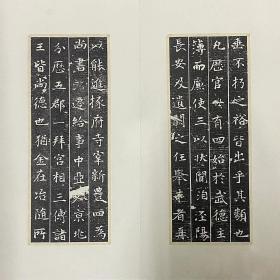 垂不朽之裕皆出乎其類也
凡歷官廿有四始於武德主
簿而廉使三以狀聞洎涇陽
長安及遺闕之任舉者無
以能進掾府寺宰新豐四為
尚書郎遷給事中亞京北
分歷五郡一拜宮相三傅諸
王皆尚德也猶金在冶隨所